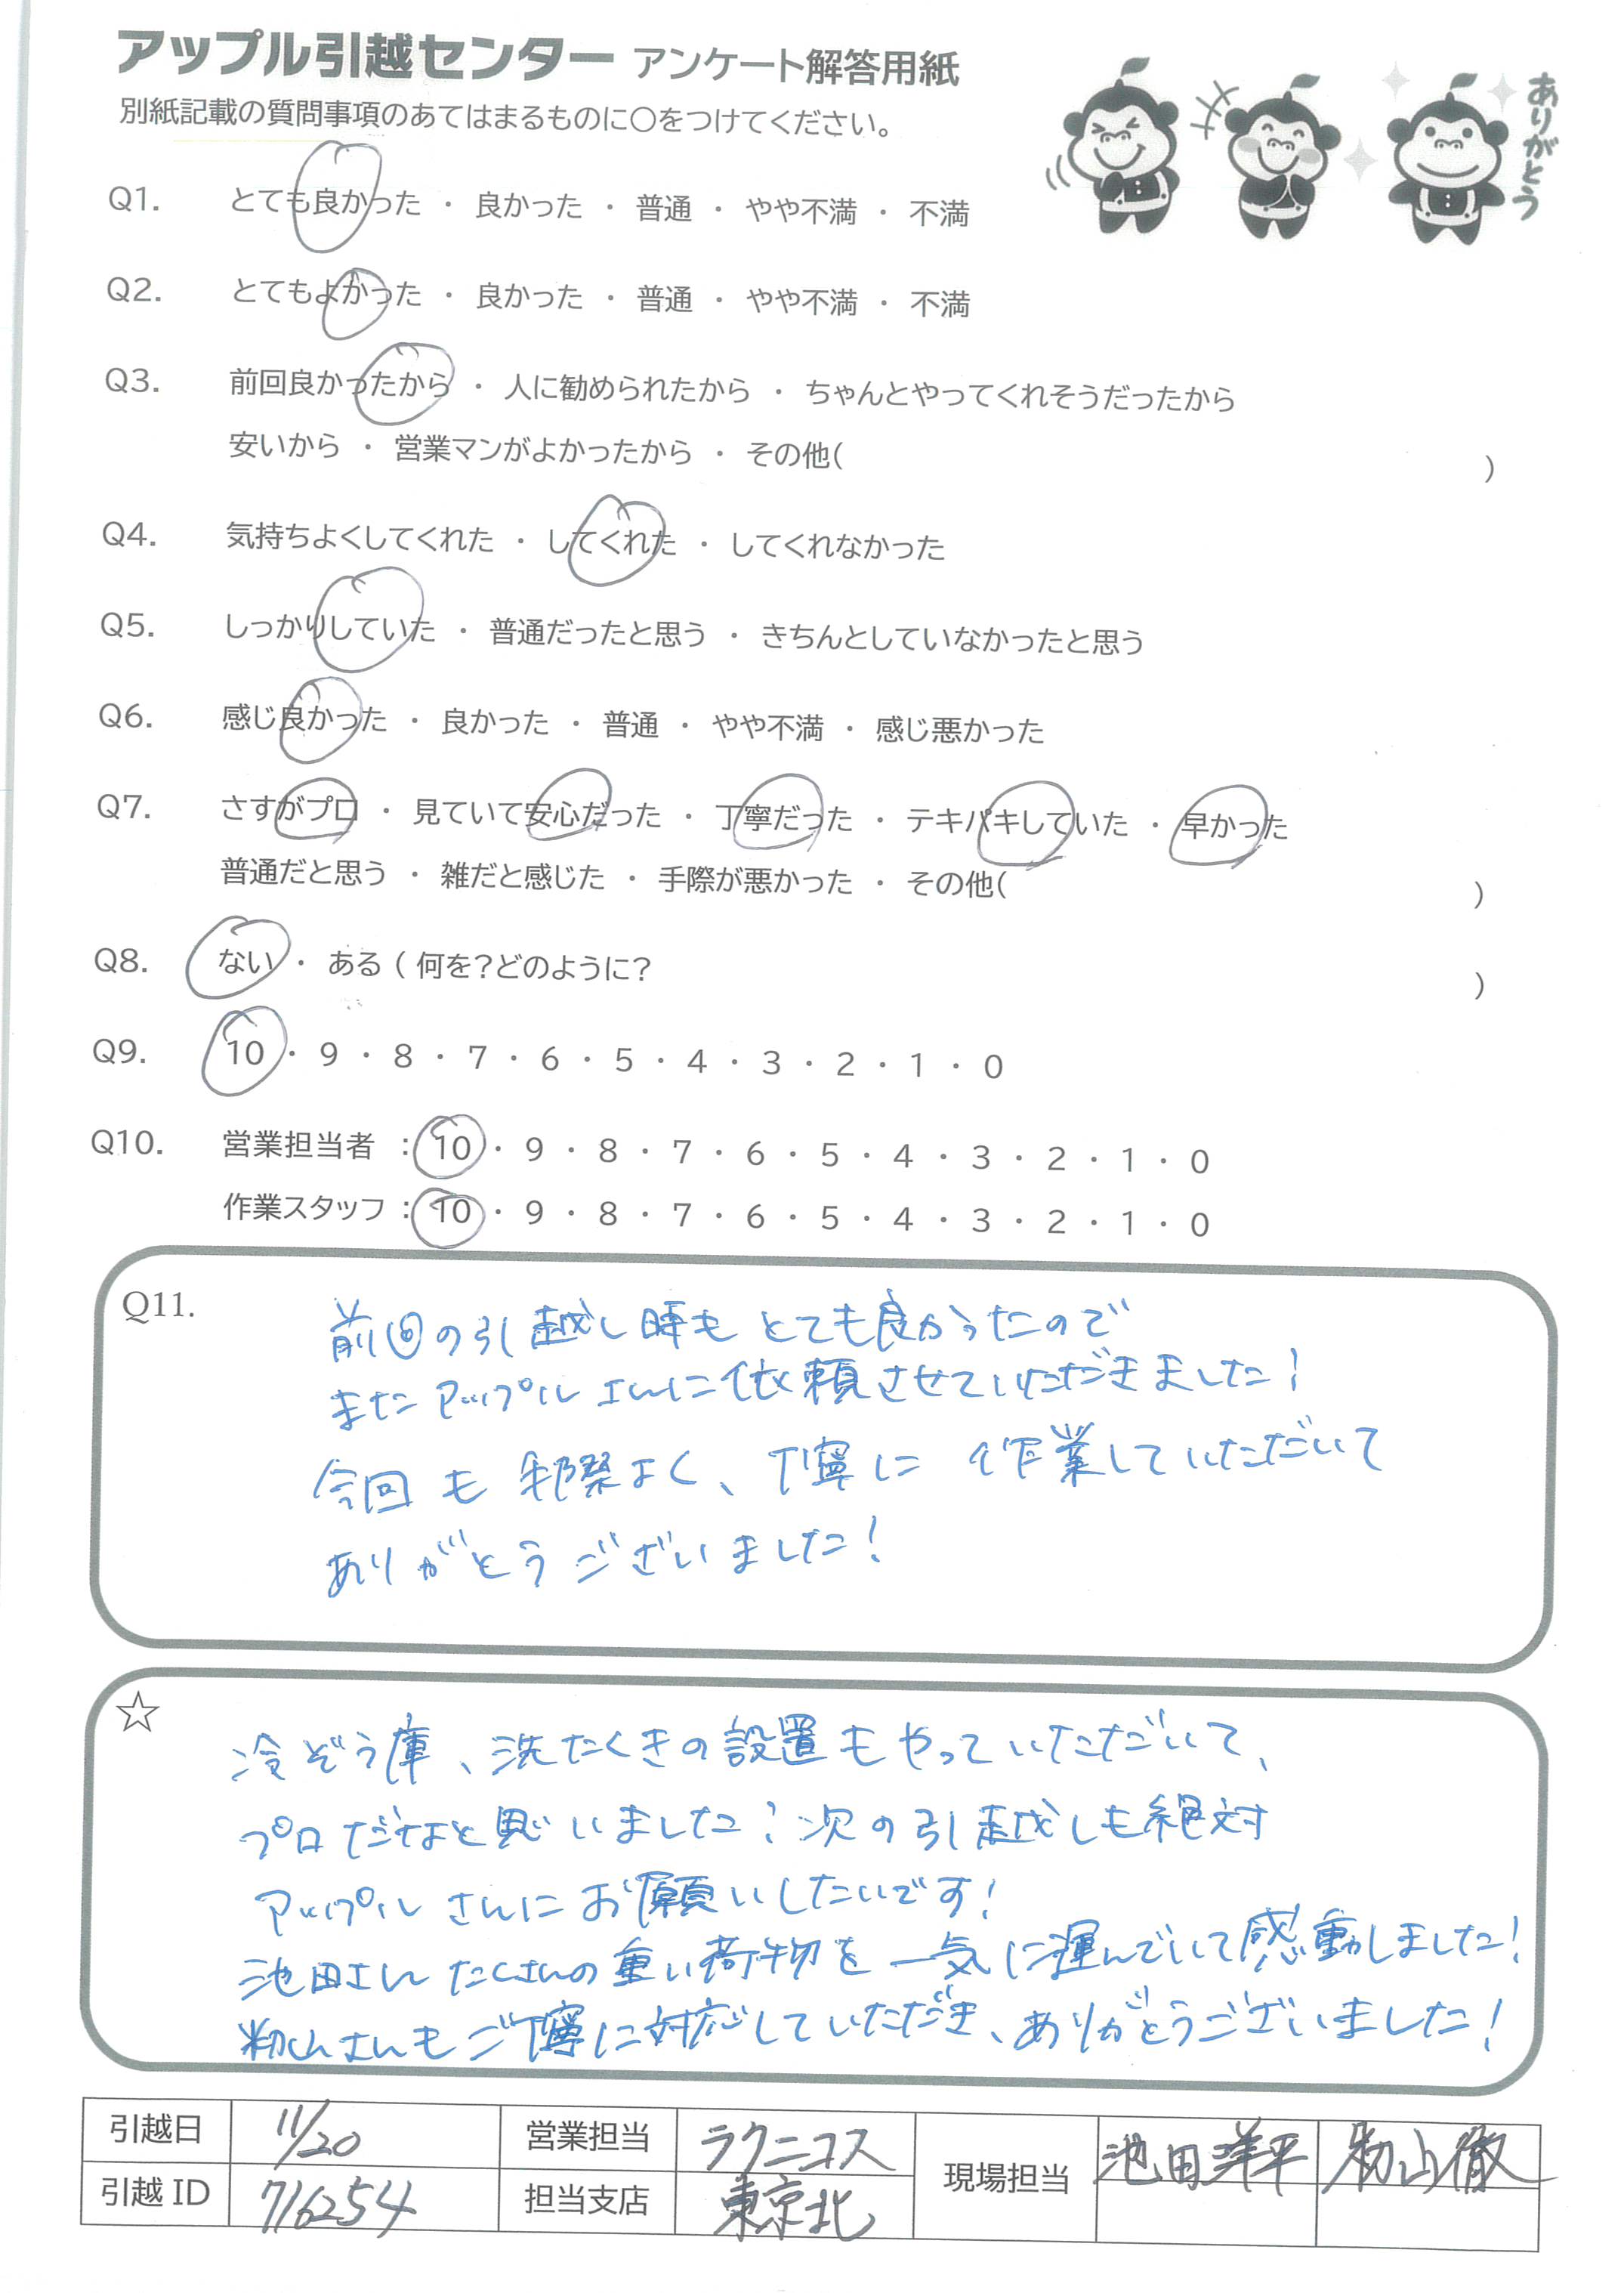 アップル引越センター アンケート解答用紙
別紙記載の質問事項のあてはまるものに○をつけてください。
ありがとう
Q1. とても良かった ・ 良かった ・ 普通 ・ やや不満 ・ 不満
Q2. とてもよかった ・ 良かった ・ 普通 ・ やや不満 ・ 不満
Q3. 前回良かったから ・ 人に勧められたから ・ ちゃんとやってくれそうだったから
安いから ・ 営業マンがよかったから ・ その他( )
Q4. 気持ちよくしてくれた ・ してくれた ・ してくれなかった
Q5. しっかりしていた ・ 普通だったと思う ・ きちんとしていなかったと思う
Q6. 感じ良かった ・ 良かった ・ 普通 ・ やや不満 ・ 感じ悪かった
Q7. さすがプロ ・ 見ていて安心だった ・ 丁寧だった ・ テキパキしていた ・ 早かった
普通だと思う ・ 雑だと感じた ・ 手際が悪かった ・ その他( )
Q8. ない ・ ある ( 何を?どのように? )
Q9. 10 ・ 9 ・ 8 ・ 7 ・ 6 ・ 5 ・ 4 ・ 3 ・ 2 ・ 1 ・ 0
Q10. 営業担当者 : 10 ・ 9 ・ 8 ・ 7 ・ 6 ・ 5 ・ 4 ・ 3 ・ 2 ・ 1 ・ 0
作業スタッフ : 10 ・ 9 ・ 8 ・ 7 ・ 6 ・ 5 ・ 4 ・ 3 ・ 2 ・ 1 ・ 0
Q11.
前回の引越し時もとても良かったので
またアップルさんに依頼させていただきました!
今回も手際よく、丁寧に作業していただいて
ありがとうございました!
☆
冷ぞう庫、洗たくきの設置もやっていただいて、
プロだなと思いました!次の引越しも絶対
アップルさんにお願いしたいです!
池田さんたくさんの重い荷物を一気に運んでいて感動しました!
籾山さんもご丁寧に対応していただき、ありがとうございました!
引越日 11/20 営業担当 ラクニコス 現場担当 池田洋平 籾山徹
引越ID 716254 担当支店 東京北